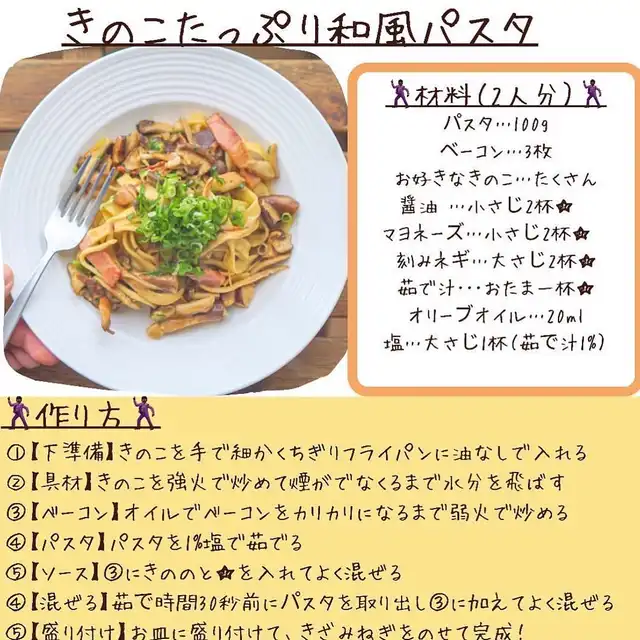 きのこたっぷり和風パスタ
材料(2人分)
パスタ…100g
ベーコン…3枚
お好きなきのこ…たくさん
醤油 …小さじ2杯★
マヨネーズ…小さじ2杯★
刻みネギ…大さじ2杯★
茹で汁･･･おたま一杯★
オリーブオイル…20ml
塩…大さじ1杯(茹で汁1%)
作り方
①【下準備】きのこを手で細かくちぎりフライパンに油なしで入れる
②【具材】きのこを強火で炒めて煙がでなくるまで水分を飛ばす
③【ベーコン】オイルでベーコンをカリカリになるまで弱火で炒める
④【パスタ】パスタを1%塩で茹でる
⑤【ソース】③にきののと★を入れてよく混ぜる
④【混ぜる】茹で時間30秒前にパスタを取り出し③に加えてよく混ぜる
⑤【盛り付け】お皿に盛り付けて、きざみねぎをのせて完成!